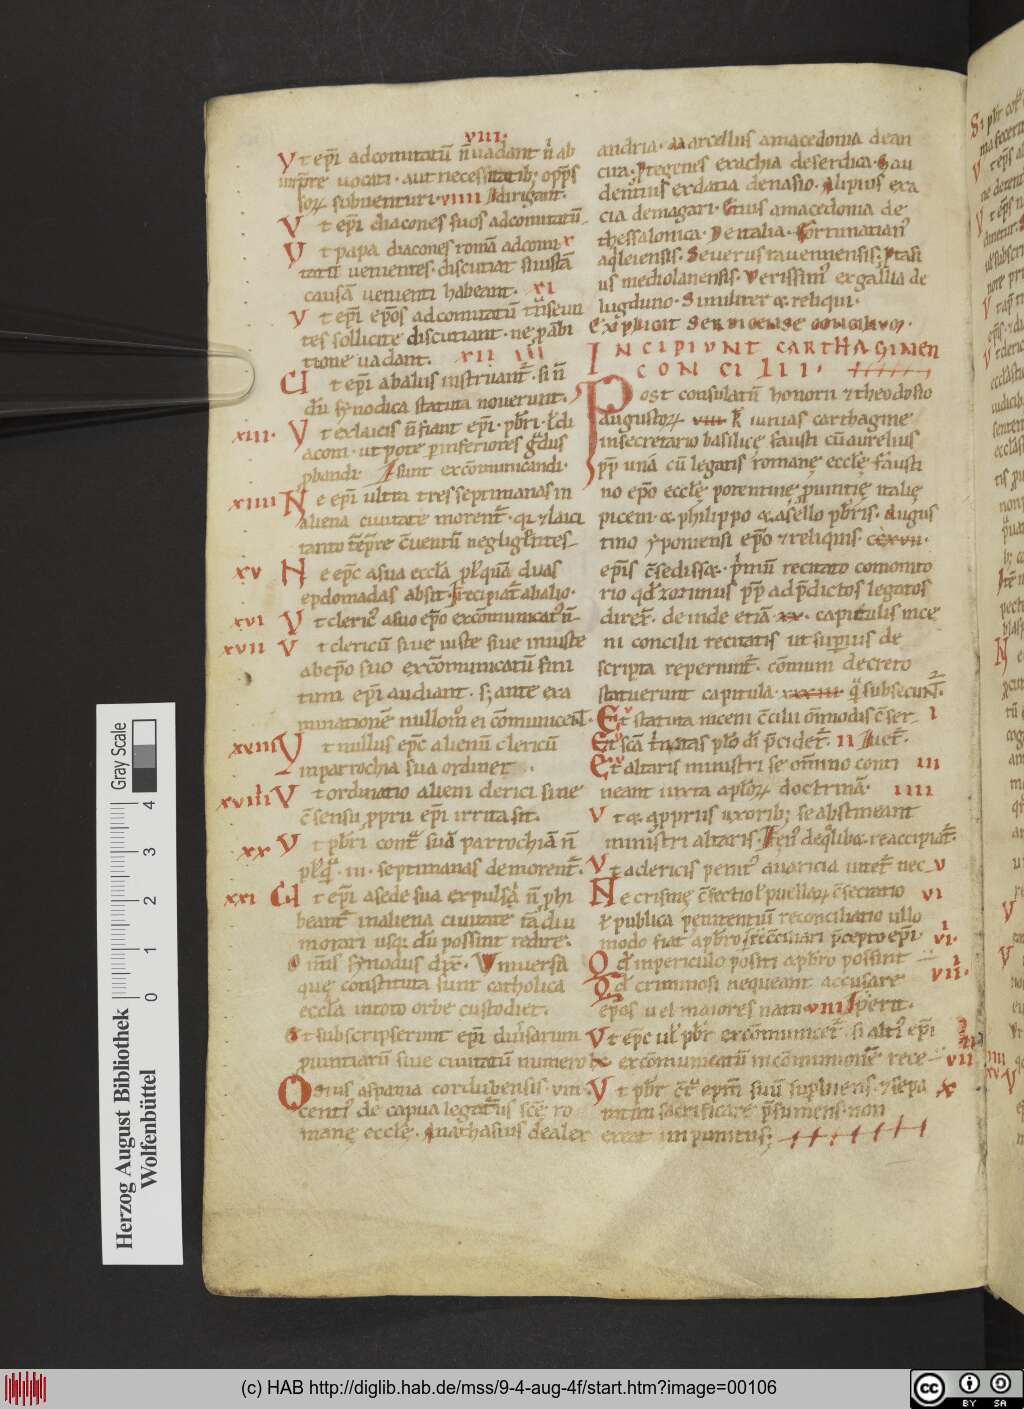 VIII.
Vt ep̄i adcomitatū n̄ uadant nͥ ab
imp̄re uocati. aut necessitatib; opp̄s
sorꝝ subuenturi. VIIII dirigant.
Vt ep̄i diacones suos adcomitatū.
Vt papa diacones romā adcomi X
tatū uenientes. discutiat si iustā
causā uenienti habeant. XI
Vt ep̄i ep̄os adcomitatū tn̄seun
tes sollicite discutiant. ne p̄abi
tione uadant. XII XIII
Vt ep̄i abaliis instruant̄. si n̄
dū synodica statuta nouerunt.
XIII. Vt exlaicis n̄ fiant ep̄i. pb̄ri. ł di
aconi. ut pote p̱ inferiores ḡdus
p̱bandi. sunt excōmunicandi.
XIIII Ne ep̄i ultra tres septimanas in
aliena ciuitate morent̄. qͥ ⁊ laici
tanto tēp̄re c̄uentū negligent̄es
XV Ne ep̄c asua eccl̄a pl̓quā duas
epdomadas absit. Recipiat̄ abalio.
XVI Vt cleric᷒ a suo ep̄o excōmunicat᷒ n̄
XVII Vt clericū siue iuste siue iniuste
ab ep̄o suo excōmunicatū fini
timi ep̄i audiant. s; ante exa
minationē nullom̊ ei cōmunicent.
XVIII Vt nullus ep̄c alienū clericū
inparrochia sua ordinet.
XVIIII Vt ordinatio alieni clerici sine
c̄sensu p̱prii ep̄i irrita sit.
XX Vt pb̄ri cont̄ suā parrochiā n̄
pl̓q̄ .III. septimanas demorent̄.
XXI Vt ep̄i asede sua expulsi n̄ p̱hi
beant̄ inaliena ciuitate tā diu
morari usq; dū possint redire.
Om̄is synodus dix̄. Vniuersa
que constituta sunt catholica
eccl̄a intoto orbe custodiet.
Et subscripserunt ep̄i diuersarum
p̱uintiarū siue ciuitatū numero LX
Osius aspania cordubensis. uin
centi᷒ de capua legatus scē ro
manę ecclē. Anathasius dealex
andria. Marcellus amacedonia dean
cira. Ptegenes exachia deserdica. Gau
dentius exdatia denaso. Alipius exa
cia demagari. Etius amacedonia de
thessalonica. De italia. Fortunatian᷒
aq̱leiensis. Seuerus rauennensis. Ptasi
us mediolanensis. Verissim᷒ exgallia de
lugduno. Similiter & reliqui.
Explicit serdicense concilium.
INCIPIVNT CARTHAGINEN
CONCILII.
Post consulatū honorii ⁊ theodosio
augustorꝝ VIII k̄ iunias carthagine
insecretario basilicę fausti cū aurelius
pp̄ unā cū legatis romanę ecclę fausti
no ep̄o ecclę potentinę p̱uintię italię
piceni & philippo & asello pb̄ris. Augus
tino yponiensi ep̄o ⁊ reliquis. CCXVII.
ep̄is c̄sediss&. p̄mū recitato comonito
rio qd̄ zozimus pp̄ ad p̄dictos legatos
direx̄. deinde etiā XX. capitulis nice
ni concilii recitatis ut superius de
scripta reperiunt̄. cōmuni decreto
statuerunt capitula XXXIII q̄ subsecunt̄.
Vt statuta niceni c̄cilii om̄imodis c̄ser- I
Vt scā tͥnitas p̱lo dī p̄cidet̄. II uet̄.
Vt altaris ministri se om̄ino conti III
neant iuxta aplorꝝ doctrinā. IIII
Vt & a p̱priis uxorib; se abstineant
ministri altaris.
Vt aclericis penit᷒ auaricia uitet̄ nec V
Ne crismę c̄fectio ł puellarꝝ c̄secratio VI
ł publica penitentiū reconciliatio ullo
modo fiat apb̄ro
VI. Qd̄ inpericulo positi apb̄ro possint
VII. Qd̄ criminosi nequeant accusare
ep̄os uel maiores natu VIII
Vt ep̄c uł pb̄r excōmunicet̄. si alt̄i ep̄i
excōmunicatū incōmunionē rece VIII
Vt pb̄r c̄t̄ ep̄m suū supbiens. ⁊ sepa X
ratim sacrificare p̄sumens. non
exeat inpunitus.
Herzog August Bibliothek
Wolfenbüttel
0 1 2 3 4
Gray Scale
(c) HAB http://diglib.hab.de/mss/9-4-aug-4f/start.htm?image=00106
cc BY SA